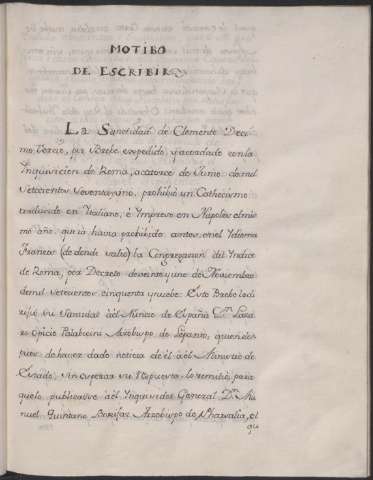 MOTIBO
DE ESCRIBIR
La Santidad de Clemente Deci-
mo Tercio, por Brebe expedido y acordado con la
Ynquisicion de Roma, a catorce de Junio de mil
setecientos sesenta y uno, prohibio un Cathecismo
traducido en Ytaliano, è Impreso en Napoles el mis-
mo año, que ia havia prohibido antes en el Ydioma
Frances (de donde salio) la Congregacion del Yndice
de Roma, por Decreto de veinte y uno de Noviembre
de mil setecientos cinquenta y nuebe. Este Brebe lo di-
rijió su Santidad àel Nuncio de España Dn. Laza-
ro Opicio Palabicini Arzobispo de Lepanto, quien des-
pues de haver dado noticia de èl àel Ministro de
Estado, sin esperar su respuesta lo remitió, para
que lo publicase àel Ynquisidor General Dn. Ma-
nuel Quintano Bonifaz Arzobispo de Pharsalia, el
qu